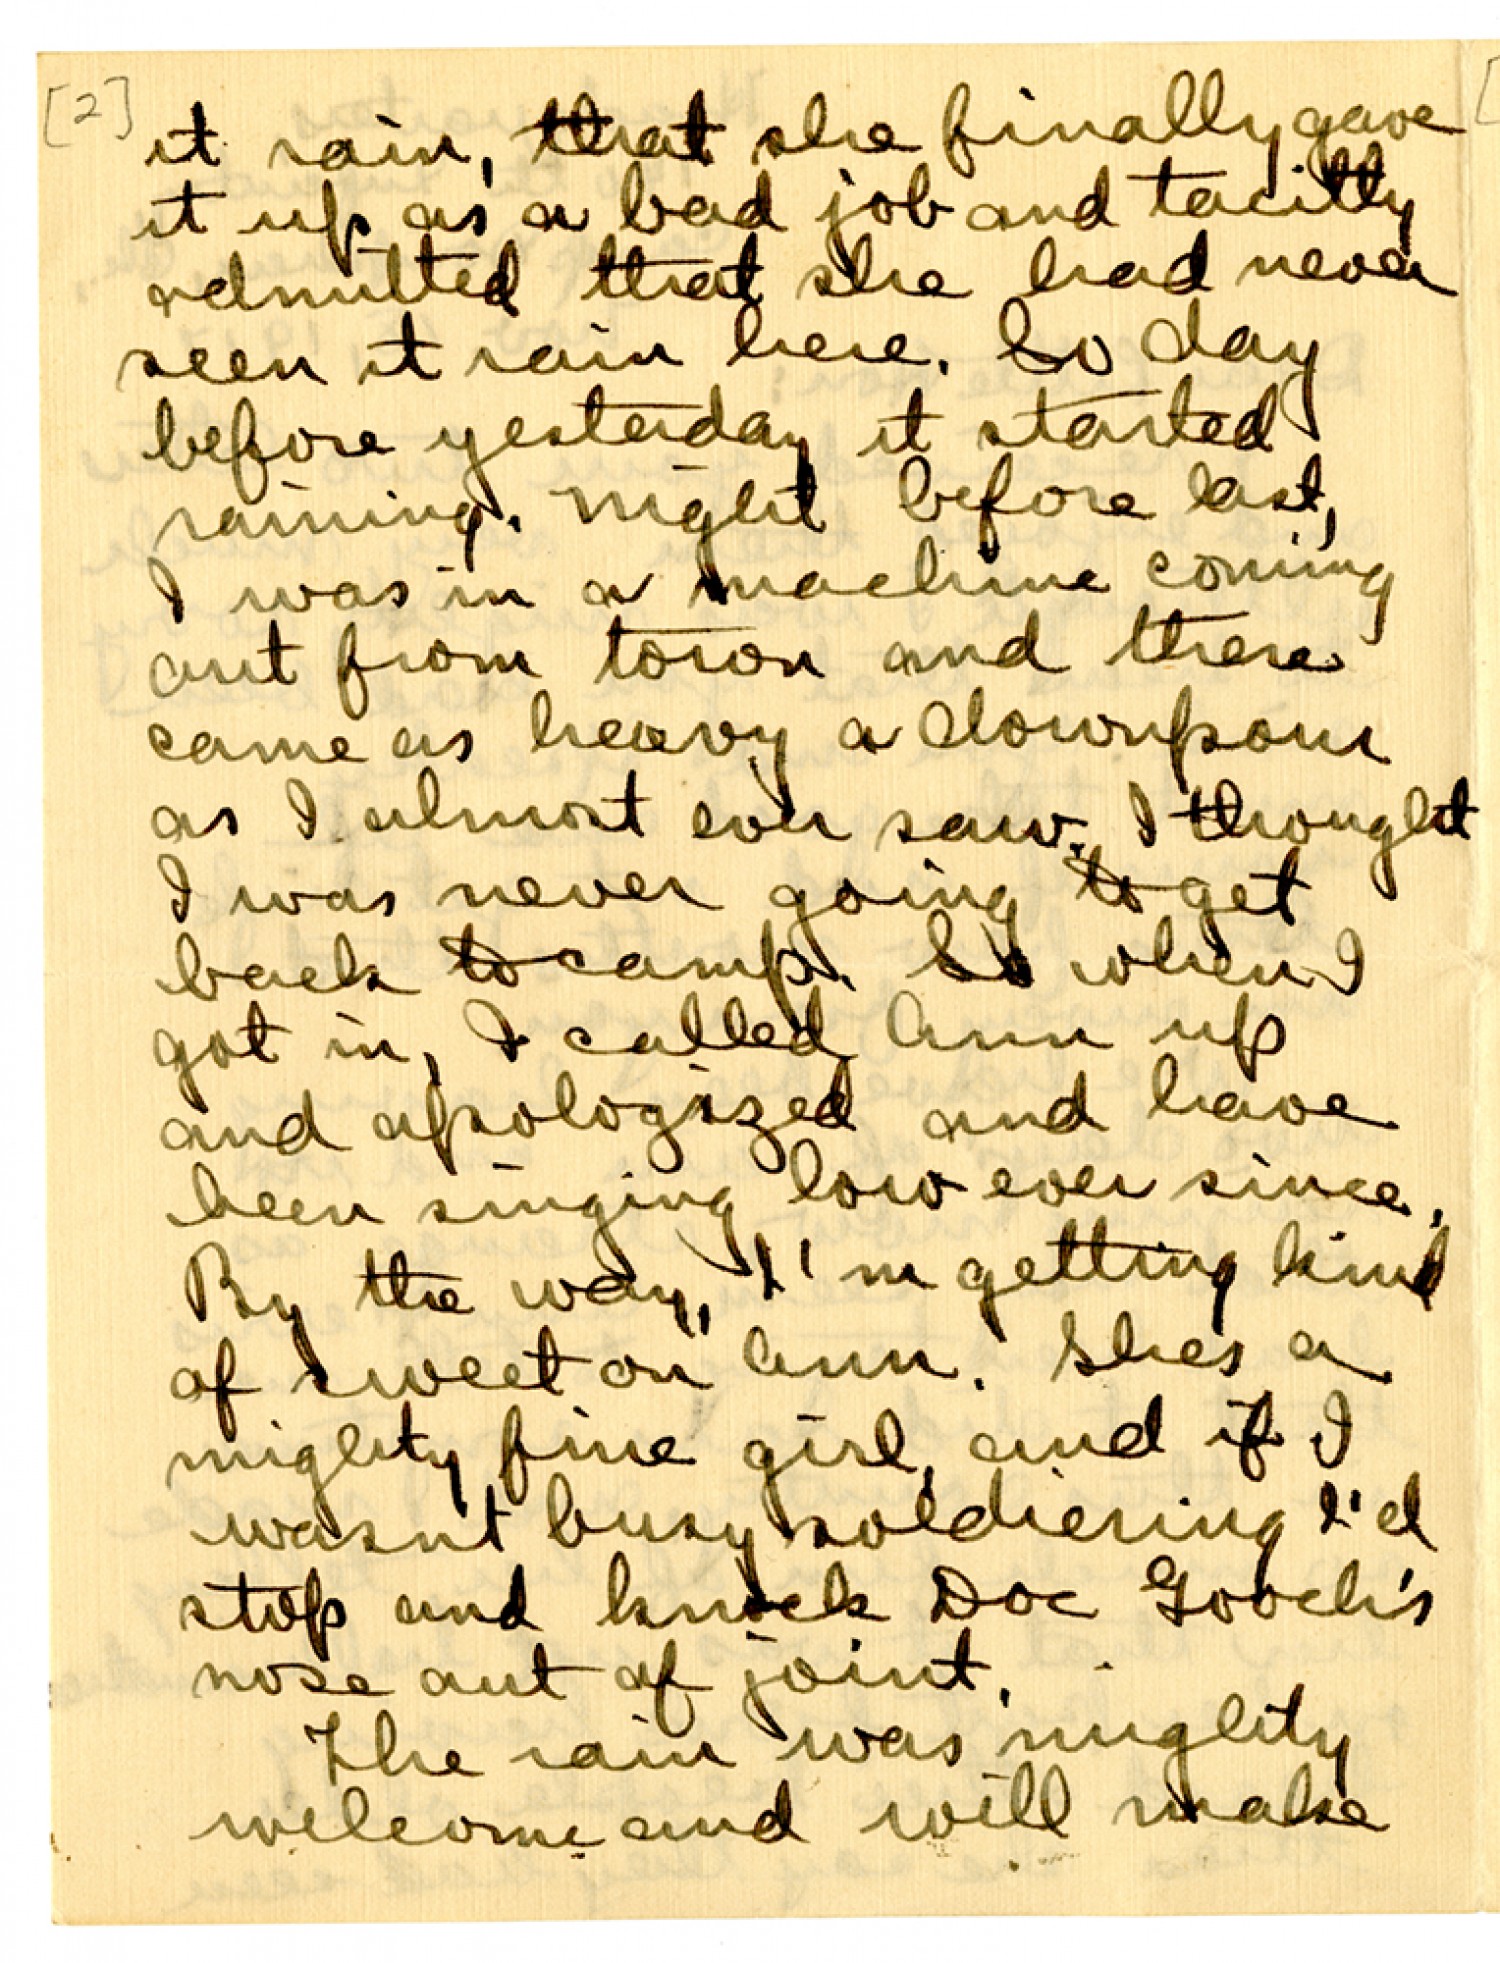 [2]
it rain, that she finally gave
it up as a bad job and tacitly
admitted that she had never
seen it rain here. So day
before yesterday it started
raining. Night before last,
I was in a machine coming
out from town and there
came as heavy a downpour
as I almost ever saw. I thought
I was never going to get
back to camp. So when I
got in, I called Ann up
and apologized and have
been singing low ever since.
By the way, I'm getting kind
of sweet on Ann. Shes a
mighty fine girl, and if I
wasn't busy soldiering I'd
stop and knock Doc Gooch's
nose out of joint.
The rain was mighty
welcome and will make